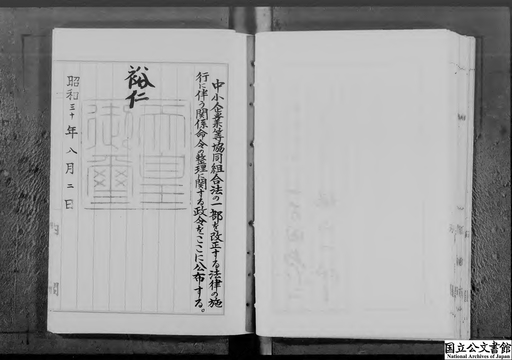 中小企業等協同組合法の一部を改正する法律の施
行に伴う関係命令の整理に関する政令をここに公布する。
裕仁
天皇
御璽
昭和三十年八月二日
国立公文書館
National Archives of Japan